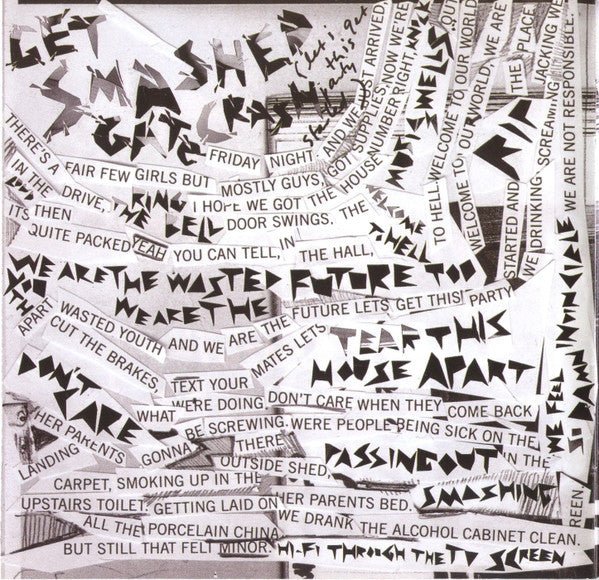 GET SMASHED
GATE CRASH
(let's get
this
party
started)
FRIDAY NIGHT AND WE JUST ARRIVED
GOT SUPPLIES, NOW WE'RE OUT
THERE'S A FAIR FEW GIRLS BUT MOSTLY GUYS,
I HOPE WE GOT THE HOUSE NUMBER RIGHT, KNOCK
IN THE DRIVE, THE
RING THE BELL
DOOR SWINGS. THE
MUSIC SWELLS
ITS THEN
QUITE PACKED YEAH YOU CAN TELL, IN THE HALL,
TO HELL
WELCOME TO OUR WORLD
WELCOME TO OUR WORLD, WE ARE
THE PLACE,
STARTED AND JACKING WE
WE DRINKING, SCREAMING,
WE ARE NOT RESPONSIBLE.
WE ARE THE WASTED FUTURE TOO
WE ARE THE
FUTURE LETS GET THIS PARTY
WASTED YOUTH AND WE ARE THE
APART
CUT THE BRAKES,
TEXT YOUR MATES LETS
TEAR THIS
HOUSE APART
DON'T CARE
WHAT WERE DOING DON'T CARE WHEN THEY COME BACK
HER PARENTS GONNA BE SCREWING. WERE PEOPLE BEING SICK ON THE
LANDING
THERE
OUTSIDE SHED
PASSING OUT IN THE
WE FEEL
SO DAMN INVINCIBLE
CARPET, SMOKING UP IN THE
UPSTAIRS TOILET, GETTING LAID ON HER PARENTS BED.
SMASHING
ALL THE PORCELAIN CHINA
WE DRANK THE ALCOHOL CABINET CLEAN.
BUT STILL THAT FELT MINOR.
HI-FI THROUGH THE TV SCREEN
REEN